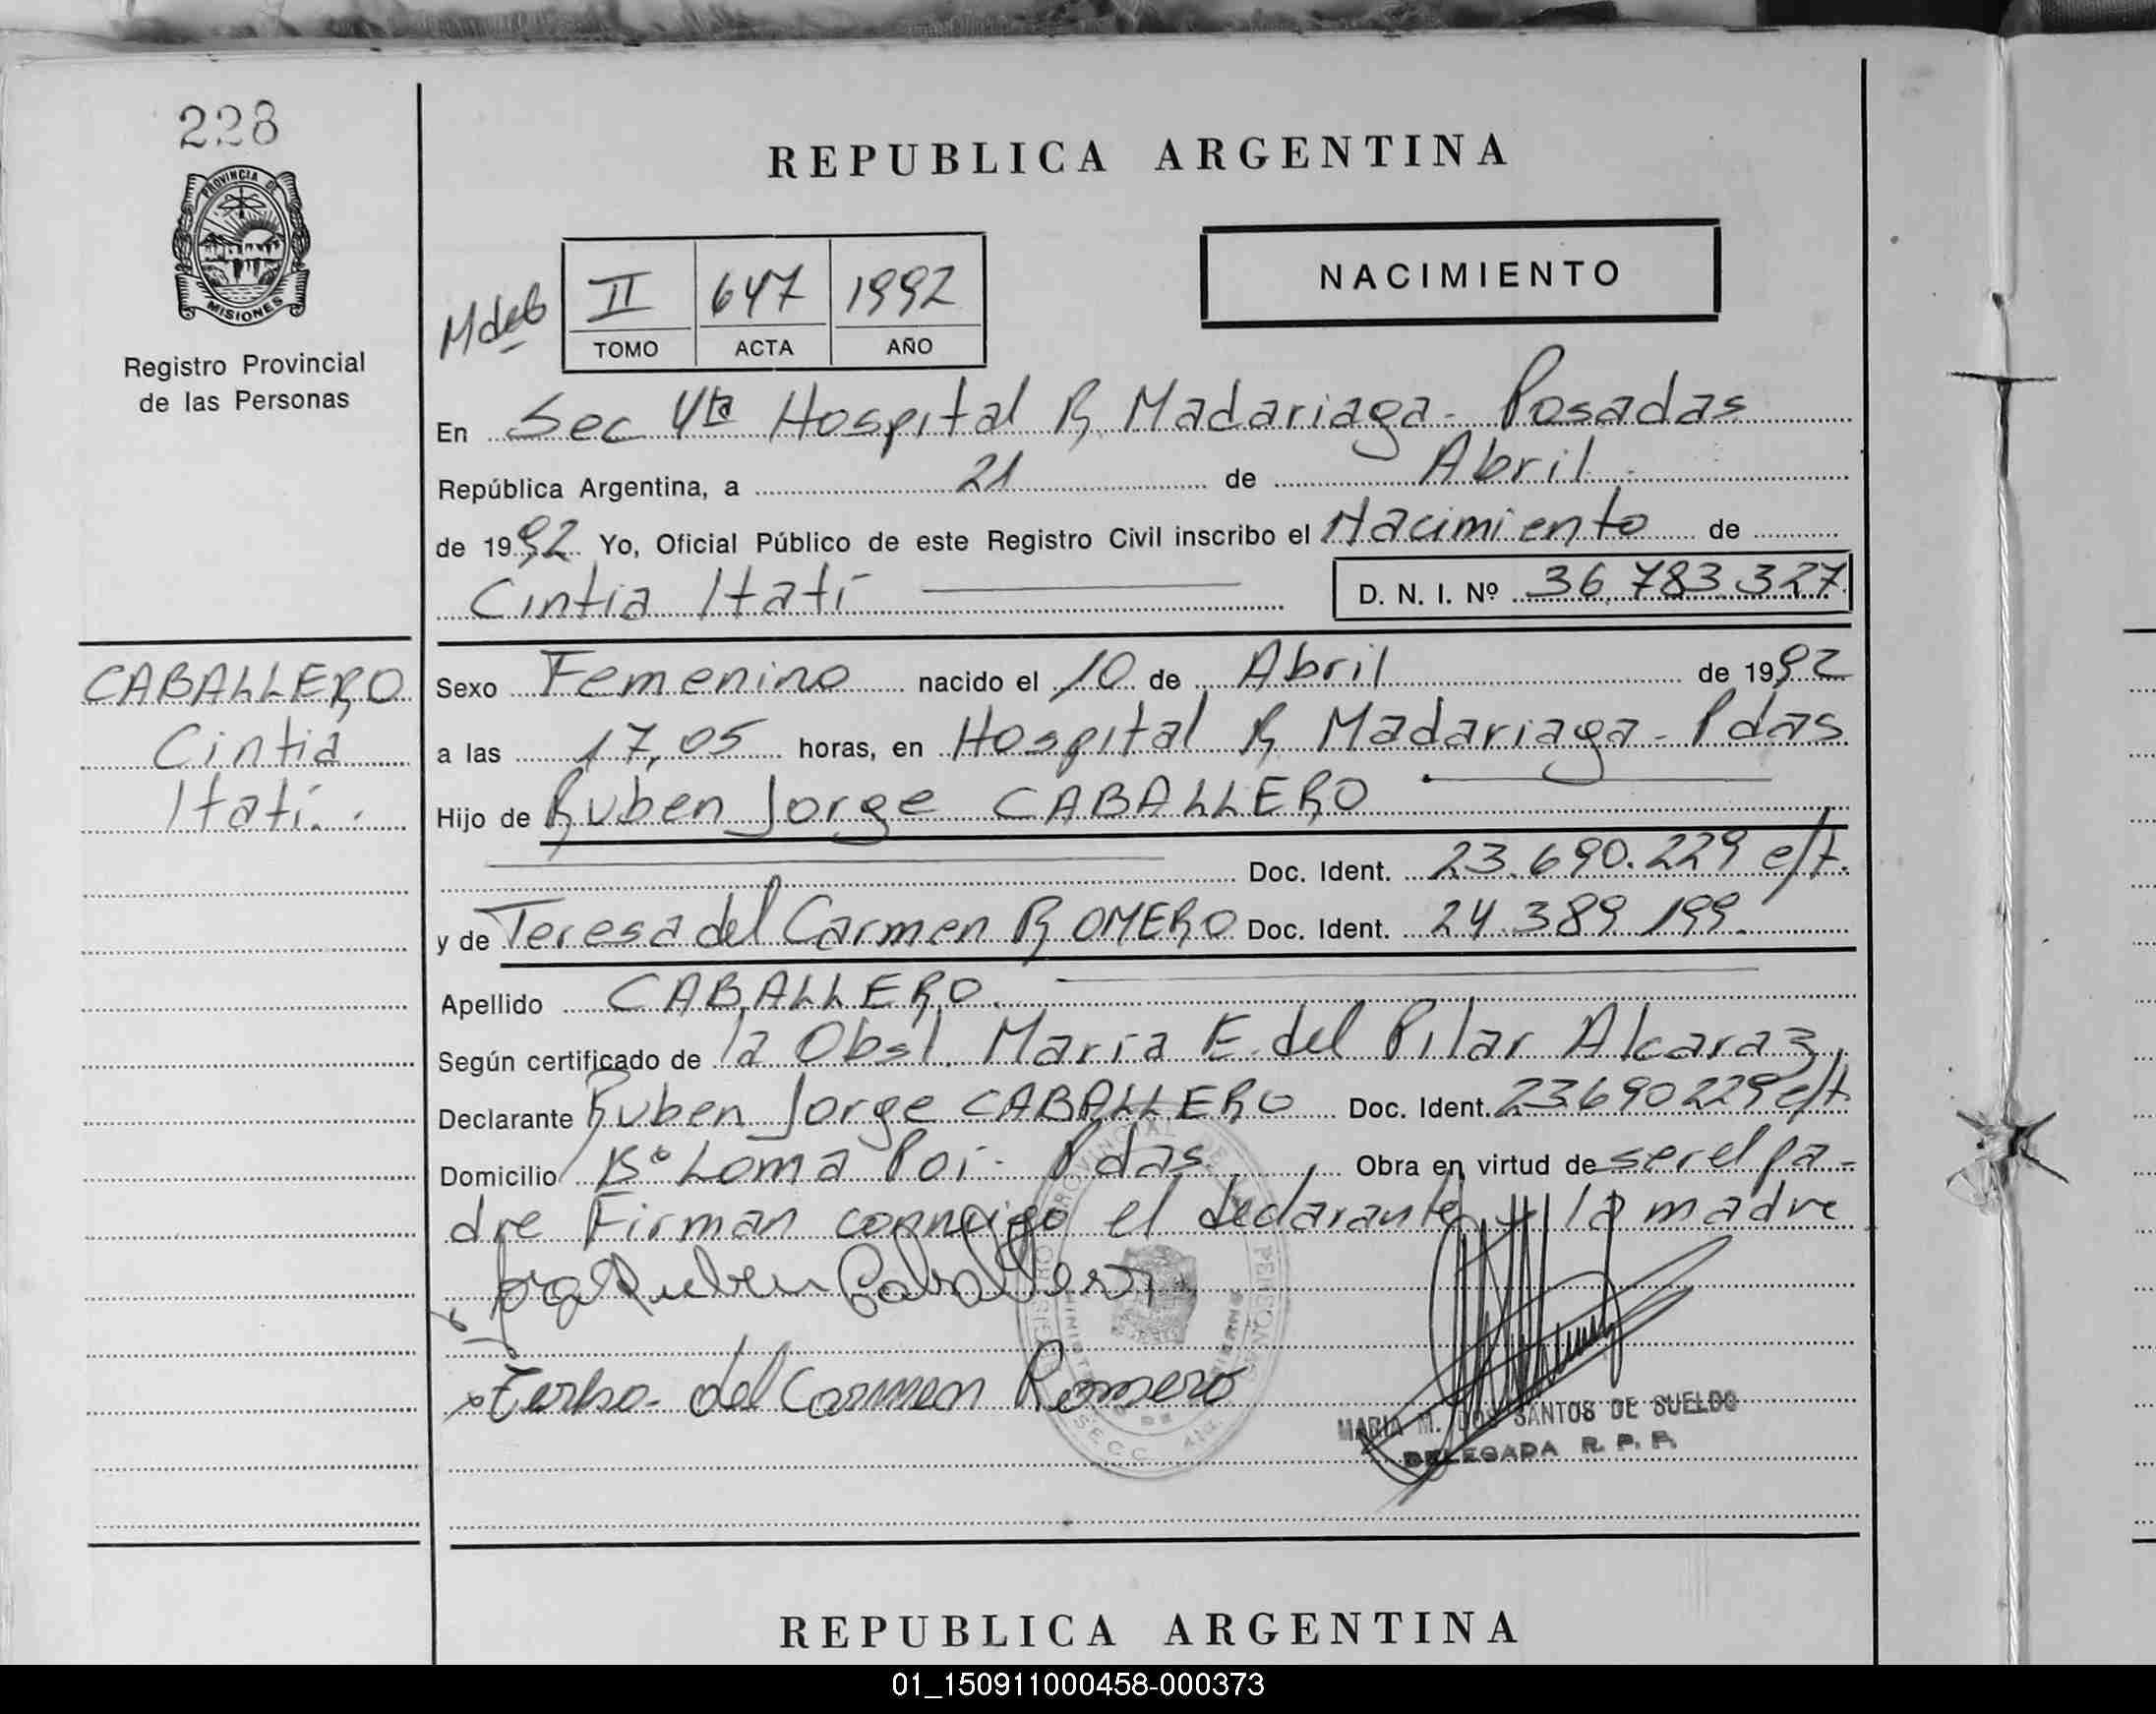 228
PROVINCIA DE
MISIONES
Registro Provincial
de las Personas
REPUBLICA ARGENTINA
NACIMIENTO
II 647 1992
TOMO ACTA AÑO
En Sec 4ta Hospital R. Madariaga - Posadas
República Argentina, a 21 de Abril
de 1992 Yo, Oficial Público de este Registro Civil inscribo el Nacimiento de
Cintia Itatí D. N. I. Nº 36.783.327
CABALLERO
Cintia
Itatí.
Sexo Femenino nacido el 10 de Abril de 1992
a las 17,05 horas, en Hospital R Madariaga - Pdas
Hijo de Ruben Jorge CABALLERO
Doc. Ident. 23.690.229 e/t.
y de Teresa del Carmen ROMERO Doc. Ident. 24.389.199.
Apellido CABALLERO.
Según certificado de la Obst. María E. del Pilar Alcaraz,
Declarante Ruben Jorge CABALLERO Doc. Ident. 23690229 e/t.
Domicilio Bº Loma Poi - Pdas, Obra en virtud de ser el pa-
dre Firman conmigo el declarante y la madre
Ruben Caballero
del Carmen Romero
MARIA M. DOS SANTOS DE SUELDO
DELEGADA R. P. P.
REPUBLICA ARGENTINA
01_150911000458-000373